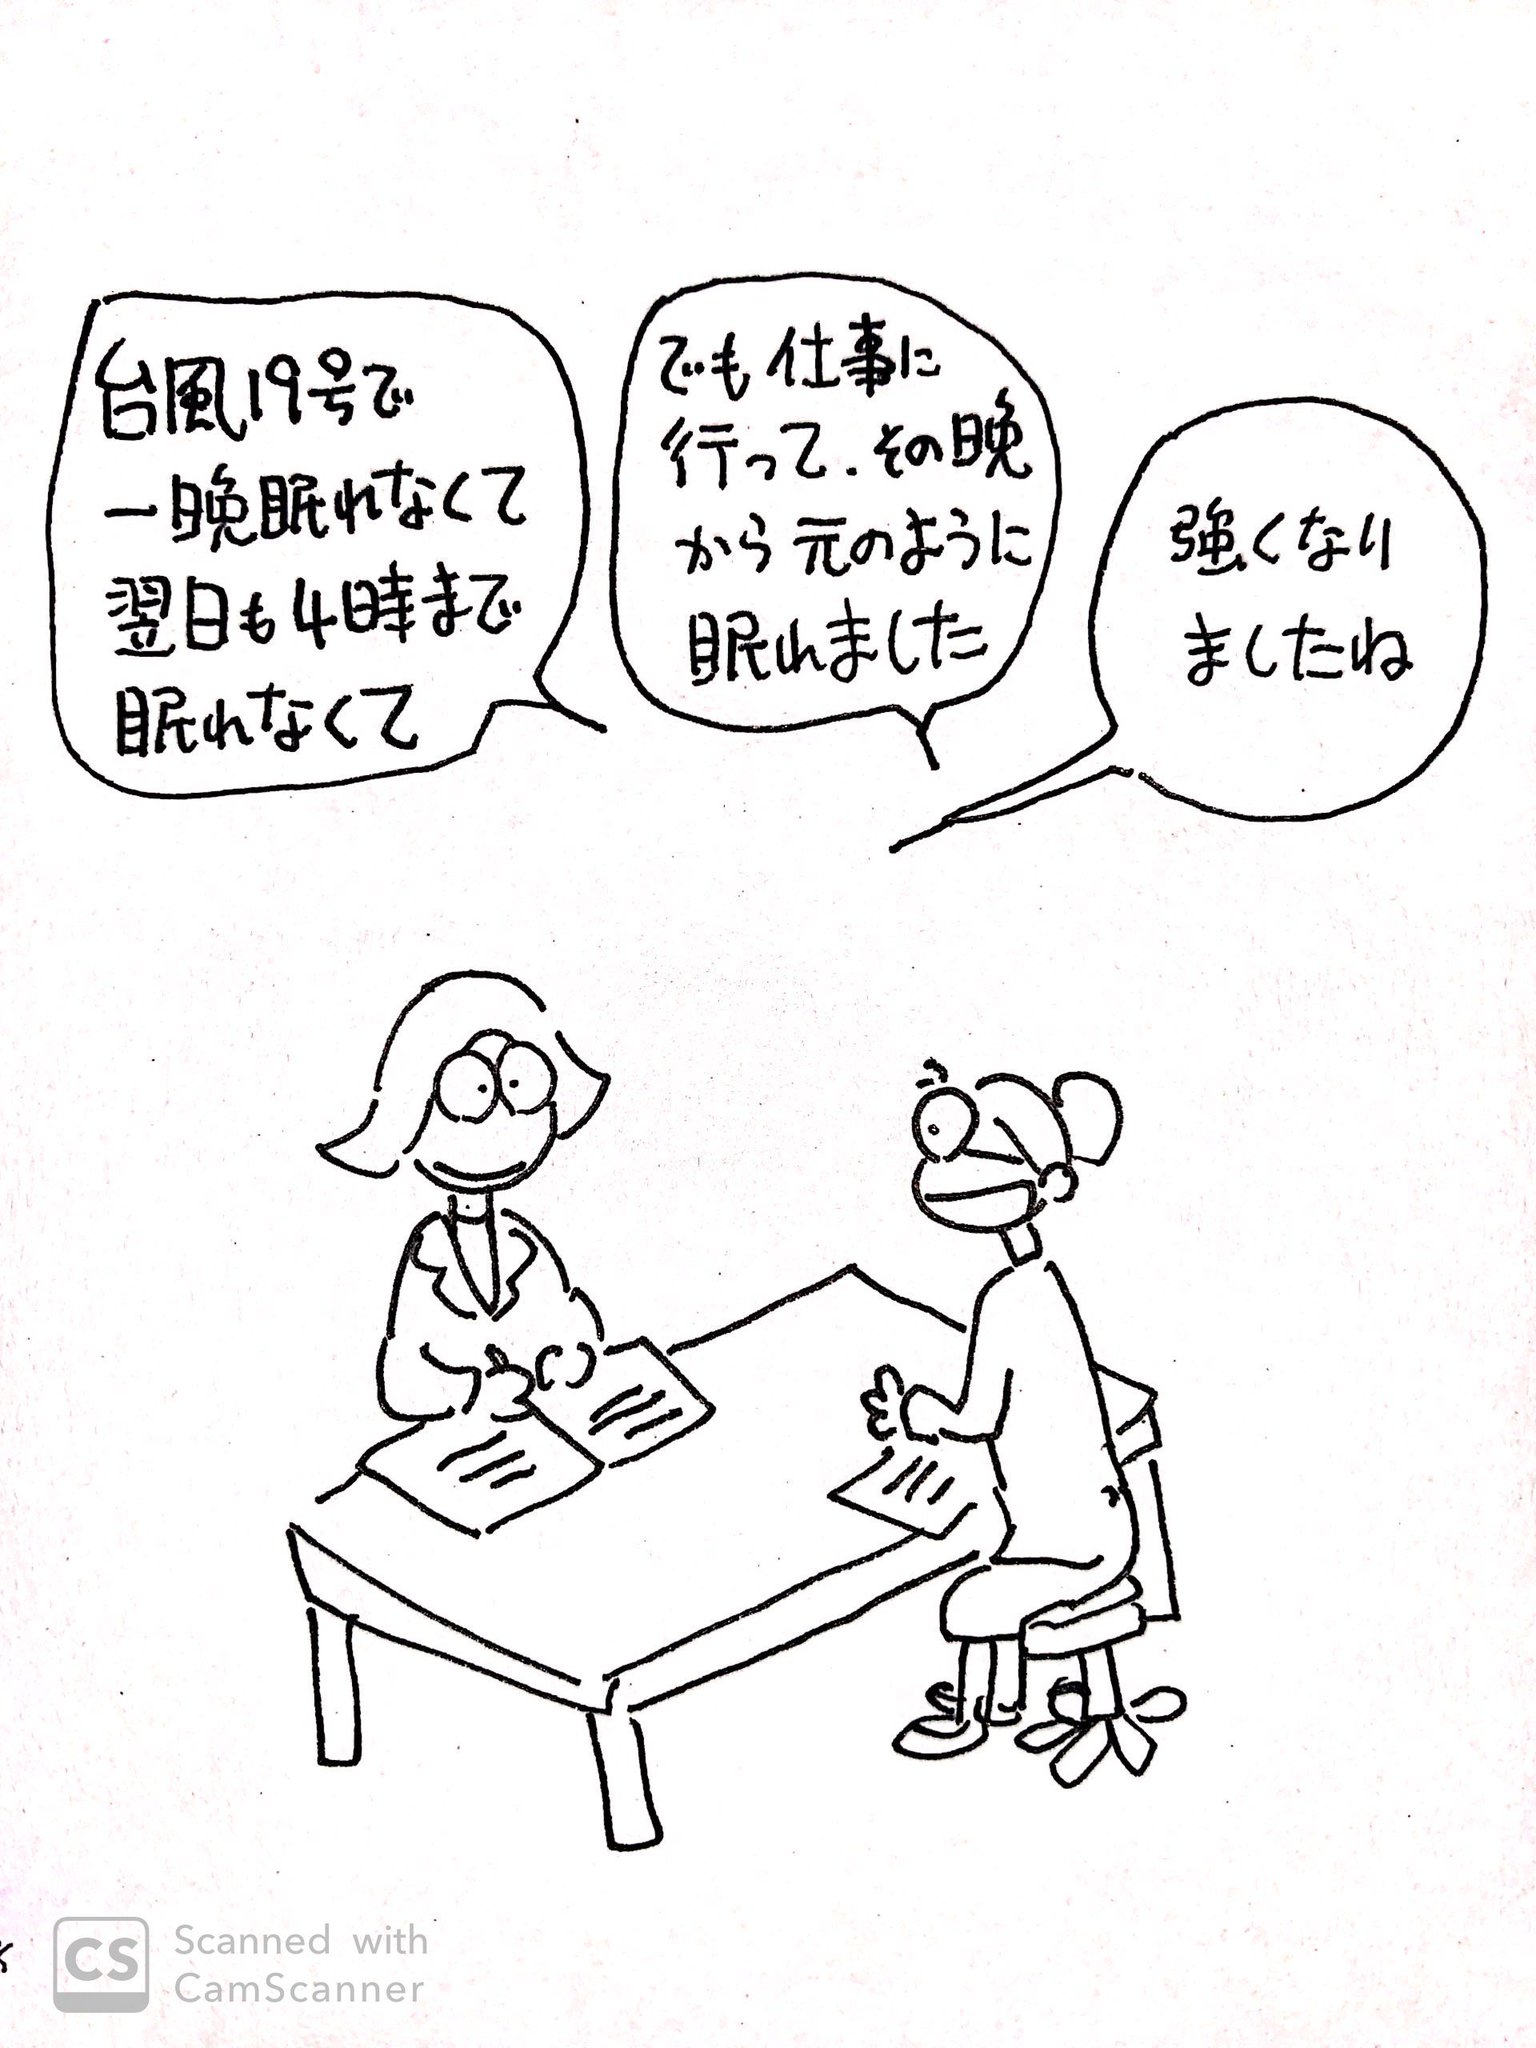 台風19号で
一晩眠れなくて
翌日も4時まで
眠れなくて
でも仕事に
行って、その晩
から元のように
眠れました
強くなり
ましたね
CS
Scanned with
CamScanner